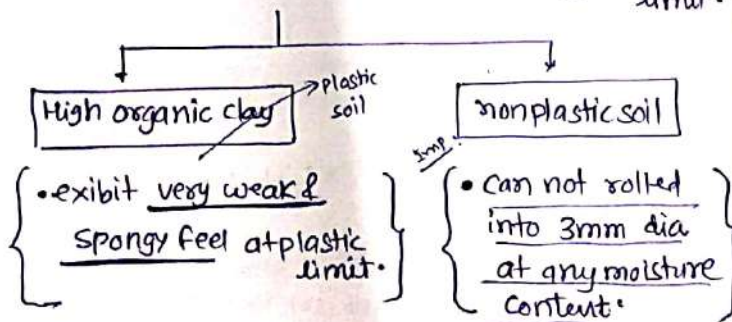 limit.
High organic clay
plastic
soil
nonplastic soil
Imp.
• exibit very weak &
spongy feel at plastic
limit.
• Can not rolled
into 3mm dia
at any moisture
content.